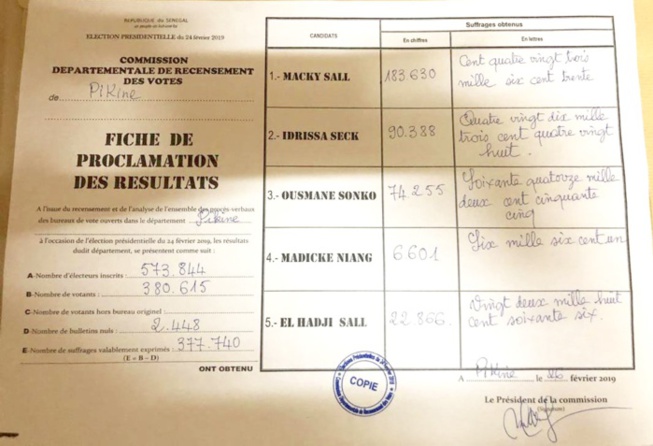 REPUBLIQUE DU SENEGAL
ELECTION PRESIDENTIELLE DU 24 février 2019
COMMISSION
DEPARTEMENTALE DE RECENSEMENT
DES VOTES
de Pikine
FICHE DE
PROCLAMATION
DES RESULTATS
A l'issue du recensement et de l'analyse de l'ensemble des procès-verbaux
des bureaux de vote ouverts dans le département Pikine
à l'occasion de l'élection présidentielle du 24 février 2019, les résultats
dudit département, se présentent comme suit :
A-Nombre d'électeurs inscrits : 573.844
B-Nombre de votants : 380.615
C-Nombre de votants hors bureau originel :
D-Nombre de bulletins nuls : 2.448
E-Nombre de suffrages valablement exprimés : 377.740
(E = B – D)
ONT OBTENU
CANDIDATS
Suffrages obtenus
En chiffres
En lettres
1.- MACKY SALL
183 630
Cent quatre vingt trois
mille six cent trente
2.- IDRISSA SECK
90.388
Quatre vingt dix mille
trois cent quatre vingt
huit.
3.- OUSMANE SONKO
74.255
Soixante quatorze mille
deux cent cinquante
cinq
4.- MADICKE NIANG
6601
Six mille six cent un
5.- EL HADJI SALL
22 866.
Vingt deux mille huit
cent soixante six.
COPIE
A Pikine le 26 février 2019
Le Président de la commission
(Signature)